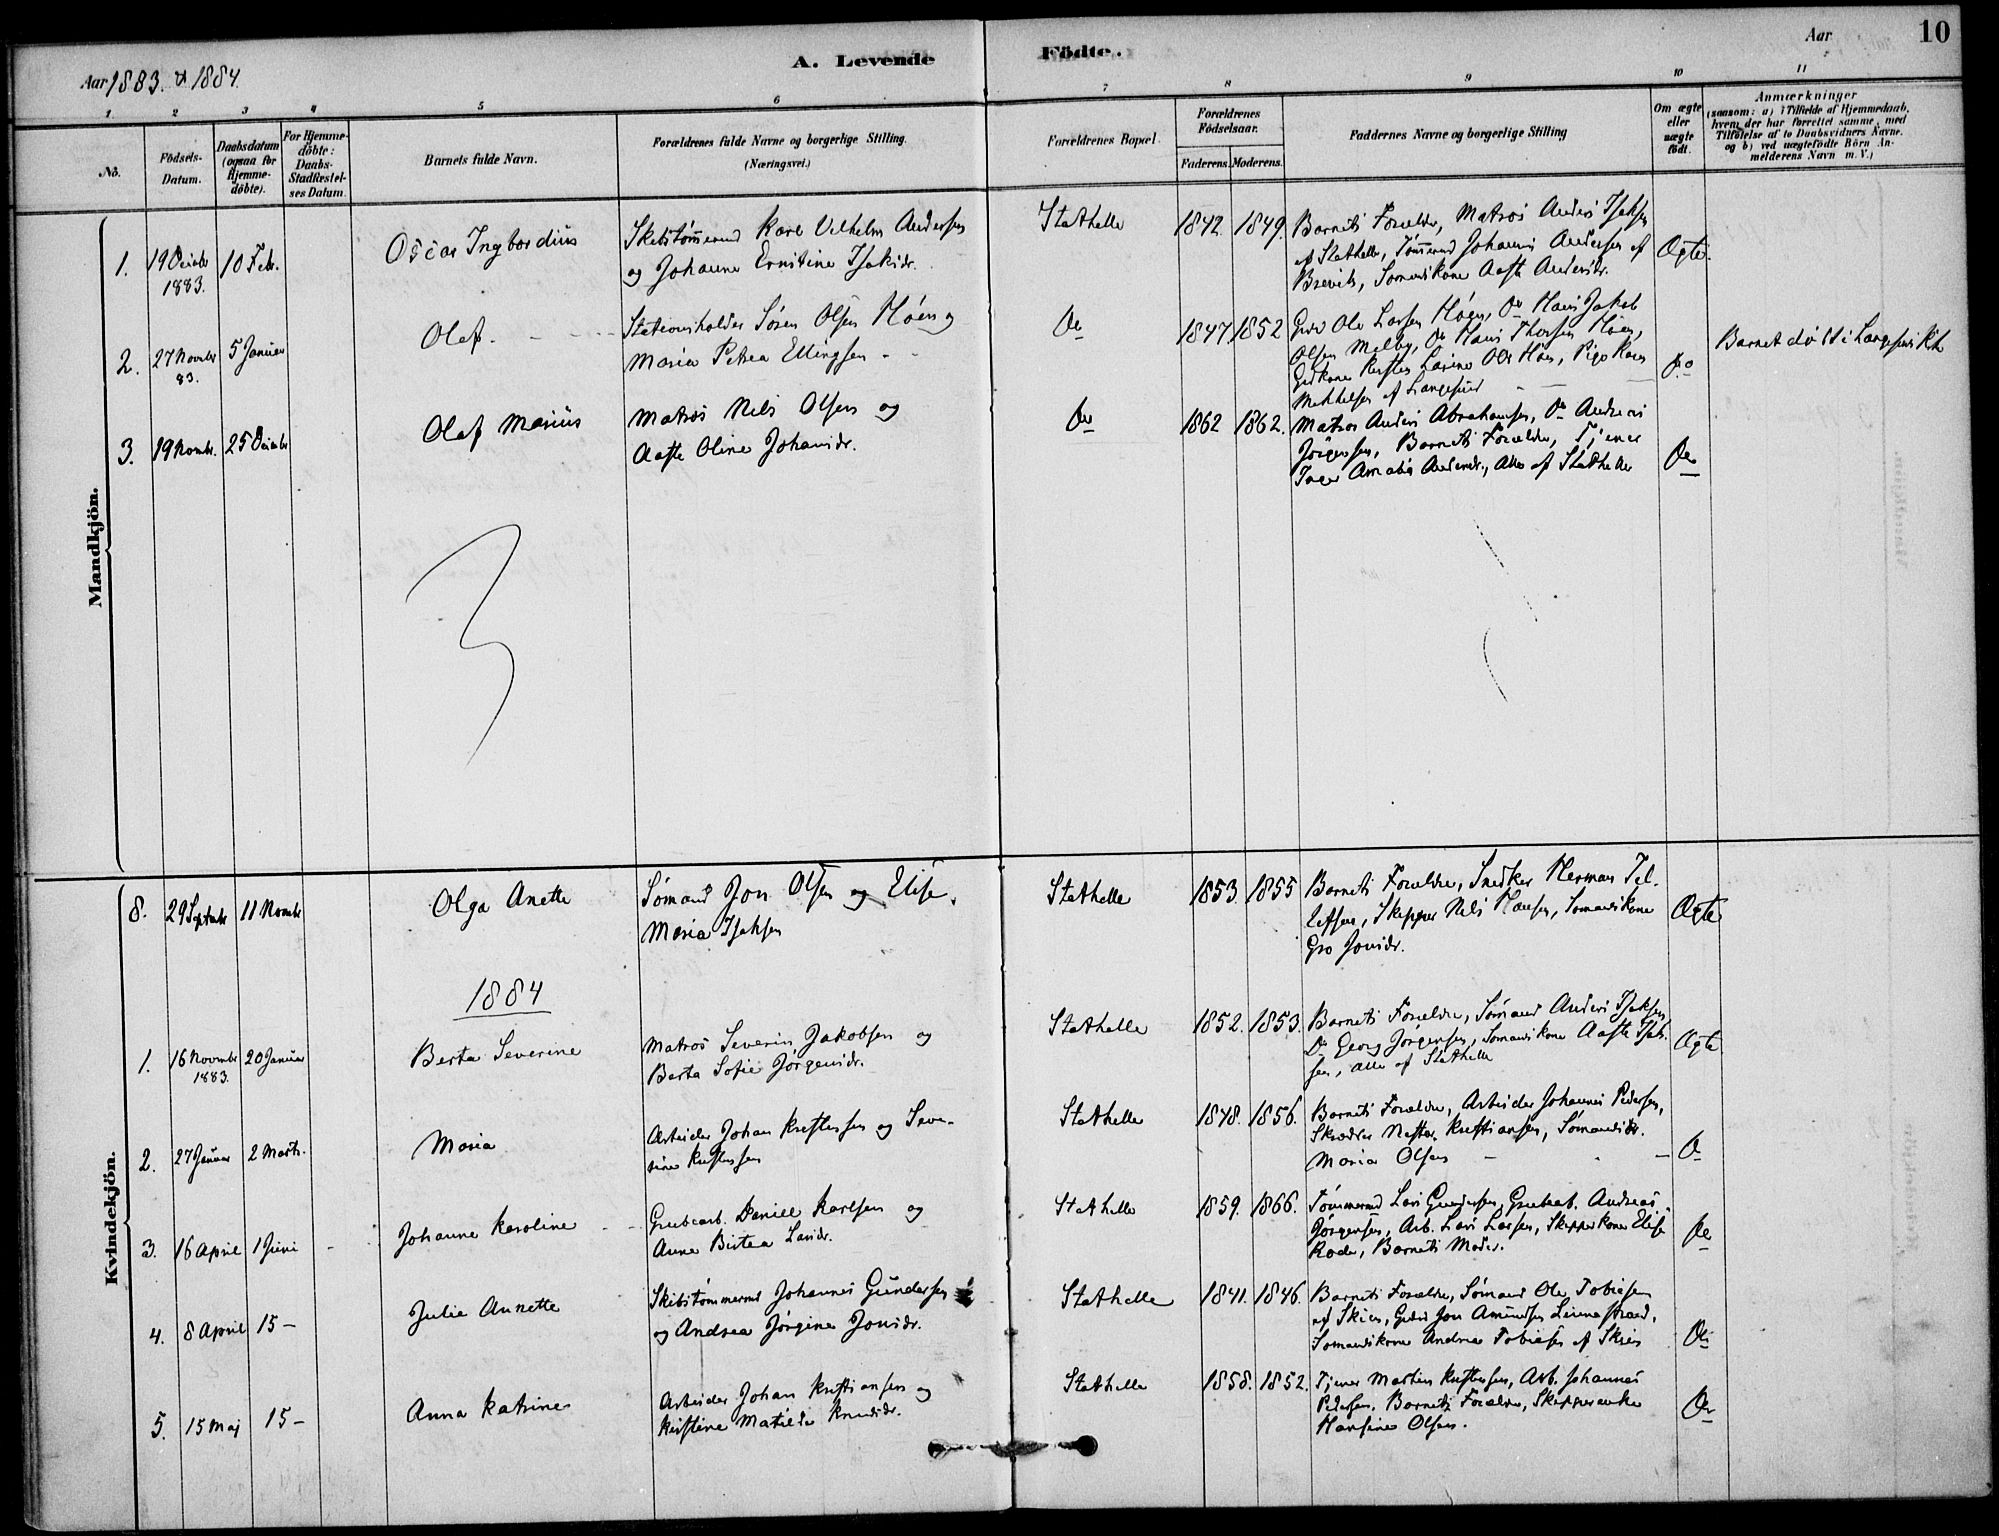 Aar 1883. & 1884.
A. Levende
Födte.
Aar
10
1 2 3 4 5 6 7 8 9 10 11
No.
Födsels-
Datum.
Daabsdatum
(ogsaa for
Hjemme-
döbte).
For Hjemme-
döbte:
Daabs-
Stadfestel-
ses Datum.
Barnets fulde Navn.
Forældrenes fulde Navne og borgerlige Stilling.
(Næringsvei.)
Forældrenes Bopæl.
Forældrenes
Födselsaar.
Faderens. Moderens.
Faddernes Navne og borgerlige Stilling
Om ægte
eller
uægte
födt.
Anmærkninger
(saasom: a) i Tilfælde af Hjemmedaab,
hvem der har forrettet samme, med
Tilföielse af to Daabsvidners Navne.
og b) ved uægtefödte Börn An-
melderens Navn m. V.)
Mandkjön.
1. 19 Decbr 1883. 10 Febr.
Oscar Ingbordius
Skibstømmermd Karl Vilhelm Andersen
og Johanne Ernstine Isaksdr.
Stathelle 1842. 1849.
Barnets Forældre, Matros Anders Isaksen
af Stathelle, Tømmermd Johannes Andersen af
Brevik, Sømandskone Aaste Andersdr.
Ægte.
2. 27 Novmbr 83. 5 Januar
Olaf.
Stationsholder Søren Olsen Høen og
Maria Petrea Ellingsen
Do 1847 1852
Grdr Ole Larsen Høgen, Do Hans Jakob
Olsen Melby, Do Hans Thorsen Høen,
Grdkone Karsten Larine Ols Høen, Pige Karen
Mikkelsen af Langesund
Do
Barnet døbt i Langesunds Kirke
3. 19 Novmbr. 25 Decmbr
Olaf Marius
Matros Nils Olsen og
Aaste Oline Johansdr.
Do 1862 1862.
Matros Anders Abrahamsen, Do Andreas
Jørgensen, Barnets Forældre, Tjener
Inger Amalie Andersdr., Alle af Stathelle
Do
3
Kvindekjön.
8. 29 Septmbr 11 Novmbr
Olga Anette
Sømand Jon Olsen og Elise
Maria Isaksen
Stathelle 1853. 1855
Barnets Forældre, Snedker Herman Tel-
lefsen, Skipper Nils Hansen, Sømandskone
Gro Jonsdr.
Ægte
1884
1. 16 Novmbr 1883. 20 Januar
Berta Severine
Matros Severin Jakobsen og
Berta Sofie Jørgensdr.
Stathelle 1852. 1853.
Barnets Forældre, Sømand Anders Isaksen,
Do Georg Jørgensen, Sømandskone Aaste Isak-
sen, alle af Stathelle
Ægte
2. 27 Januar 2 Marts.
Maria
Arbeider Johan Kristensen og Seve-
rine Kristensen
Stathelle 1848. 1856.
Barnets Forældre, Arbeider Johannes Pedersen,
Skrædder Kristiansen, Sømandsk.
Maria Olsen
Do
3. 16 April 1 Juni
Johanne Karoline
Grubearb. Daniel Karlsen og
Anne Birtea Larsdr.
Stathelle 1859. 1866.
Tømmermd Lars Gundersen, Grubearb. Andreas
Jørgensen, Arb. Lars Larsen, Skipperkone Elise
Rode, Barnets Moder.
Do
4. 8 April 15 –
Julie Annette
Skibstømmermd Johannes Gundersen
og Andrea Jørgine Jonsdr.
Stathelle 1841. 1846.
Barnets Forældre, Sømand Ole Tobiesen
af Skien, Grdbr Jon Amundsen Linnestrand,
Sømandskone Andrea Tobiesen af Skien
Do
5. 15 Maj 15 –
Anna Katrine
Arbeider Johan Kristiansen og
Kristine Matilde Knudsdr.
Stathelle 1858. 1852.
Tjener Martin Kristensen, Arb. Johannes
Pedersen, Barnets Forældre, Skipperenke
Hansine Olsen.
Do